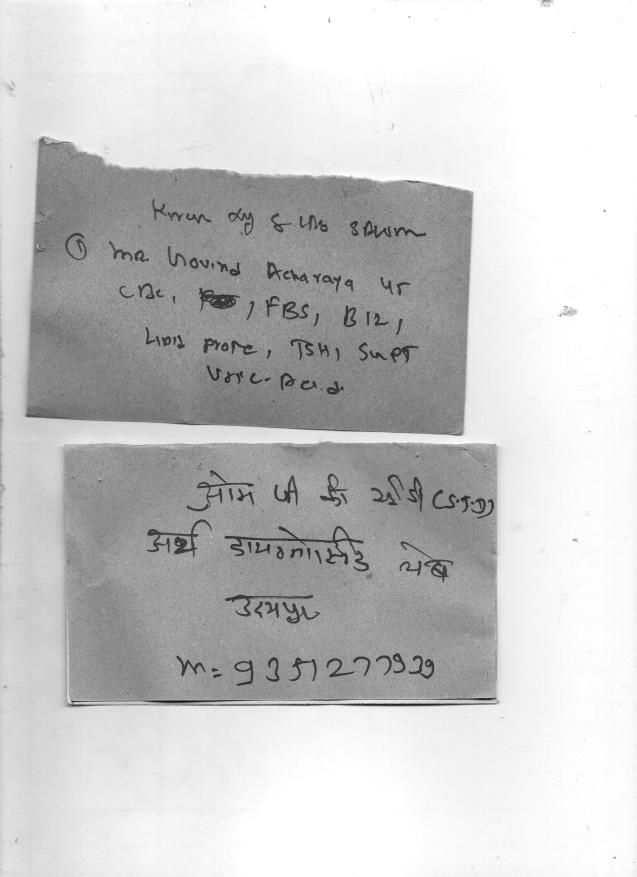 ① Mr. Govind Acharaya 45
CBC, FBS, B12,
Lipid Profile, TSH, SGPT
Uric-Acid
ओम जी की आई डी (S.J.D)
अर्थ डायग्नोस्टीक लेब
उदयपुर
M = 9351277939